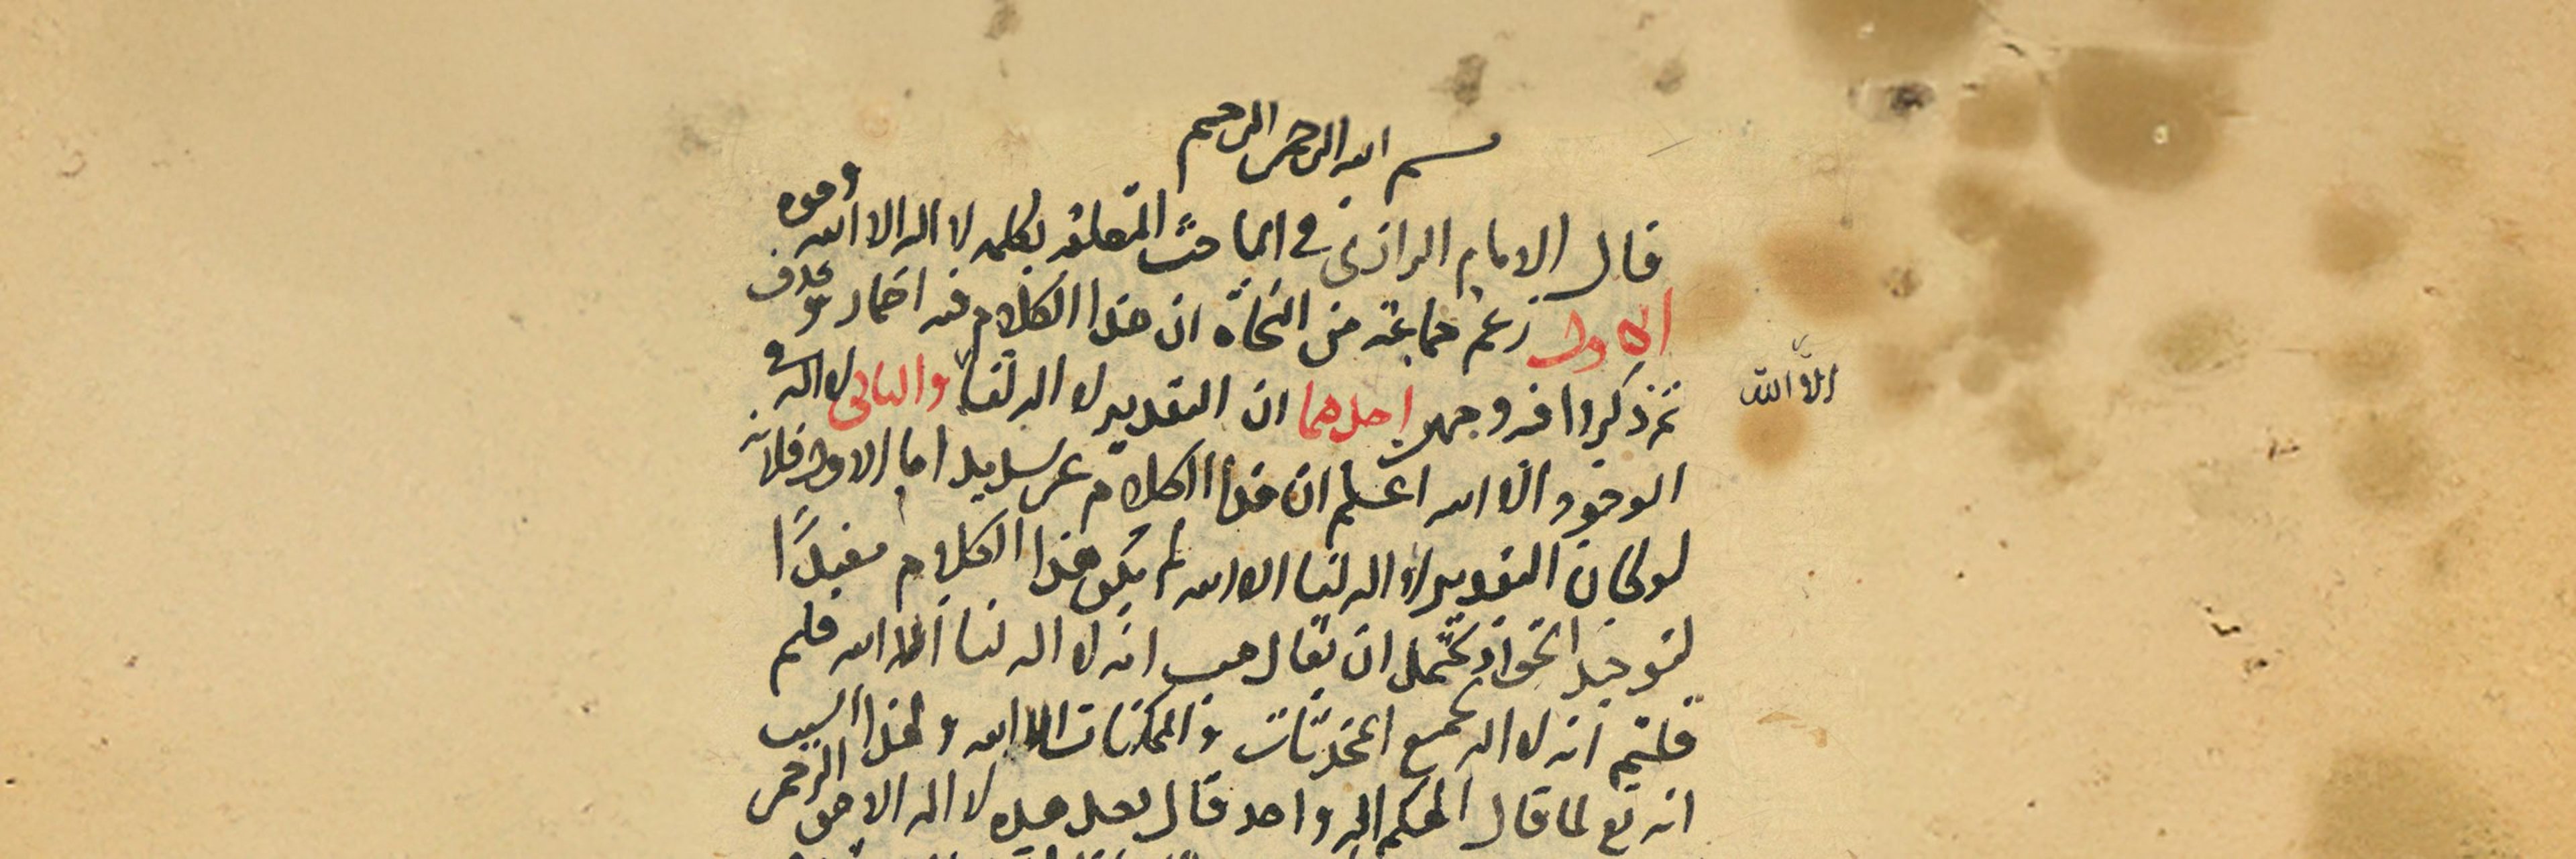 بسم الله الرحمن الرحيم
قال الامام الرازى فى المباحث المتعلقه بكلمه لا اله الا الله وجوه
الاول زعم جماعة من النحاة ان هذا الكلام فيه اضمار وحذف
ثم ذكروا فيه وجهين احدهما ان التقدير لا اله لنا والثانى لا اله فى
الا الله
الوجود الا الله اعلم ان هذا الكلام غير سديد اما الاول فلانه
لو كان التقدير لا اله لنا الا الله لم يكن هذا الكلام مفيدًا
لتوحيد الحق اذ يحتمل ان يقال هب انه لا اله لنا الا الله فلم
قلتم انه لا اله لجميع المحدثات والممكنات الا الله ولهذا السبب
انه تع لما قال الهكم اله واحد قال بعد هذه لا اله الا هو الرحمن